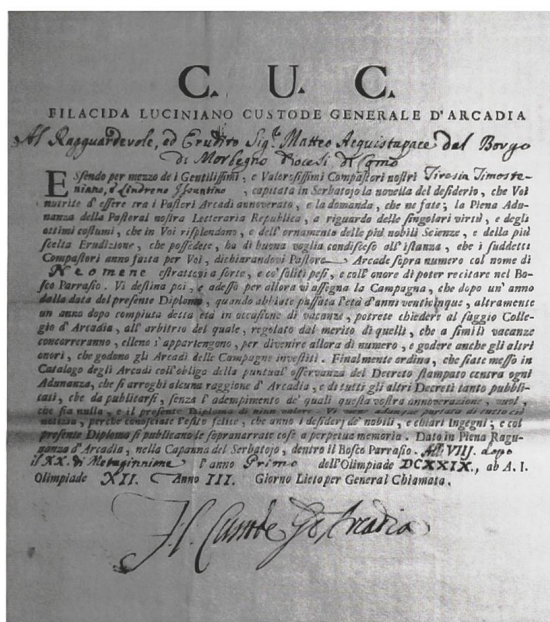 C. U. C.
FILACIDA LUCINIANO CUSTODE GENERALE D'ARCADIA
Al Ragguardevole, ed Erudito Sig.r Matteo Acquistapace dal Borgo
di Morbegno Diocesi di Como
Essendo per mezzo de i Gentilissimi, e Valorosissimi Compastori nostri Tiresia Timoste-
niano, e Lindreno Issuntino, capitata in Serbatojo la novella del desiderio, che Voi
nutrite d'essere tra i Pastori Arcadi annoverato, e la domanda, che ne fate; la Piena Adu-
nanza della Pastoral nostra Letteraria Republica, a riguardo delle singolari virtù, e degli
ottimi costumi, che in Voi risplendono, e dell'ornamento delle più nobili Scienze, e della più
scelta Erudizione, che possedete, ha di buona voglia condisceso all'istanza, che i suddetti
Compastori anno fatta per Voi, dichiarandovi Pastore Arcade sopra numero col nome di
Neomene estrattovi a sorte, e co' soliti pesi, e coll'onore di poter recitare nel Bo-
sco Parrasio. Vi destina poi, e adesso per allora vi assegna la Campagna, che dopo un'anno
dalla data del presente Diploma, quando abbiate passata l'età d'anni venticinque, altramente
un anno dopo compiuta detta età in occasione di vacanza, potrete chiedere al saggio Colle-
gio d'Arcadia, all'arbitrio del quale, regolato dal merito di quelli, che a simili vacanze
concorreranno, elleno s'appartengono, per divenire allora di numero, e godere anche gli altri
onori, che godono gli Arcadi delle Campagne investiti. Finalmente ordina, che siate messo in
Catalogo degli Arcadi coll'obligo della puntual' osservanza del Decreto stampato contra ogni
Adunanza, che si arroghi alcuna raggione d'Arcadia, e di tutti gli altri Decreti tanto pubbli-
cati, che da publicarsi, senza l'adempimento de' quali questa vostra annoverazione, vuol,
che sia nulla, e il presente Diploma di niun valore. Vi viene adunque portata di tutto ciò
notizia, perchè conosciate l'esito felice, che anno i desiderj de' nobili, e chiari Ingegni; e col
presente Diploma si publicano le sopranarrate cose a perpetua memoria. Dato in Piena Ragu-
nanza d'Arcadia, nella Capanna del Serbatojo, dentro il Bosco Parrasio. All' VIII. dopo
il XX. di Metagitnione l'anno Primo dell'Olimpiade DCXXIX., ab A. I.
Olimpiade XII. Anno III. Giorno Lieto per General Chiamata.